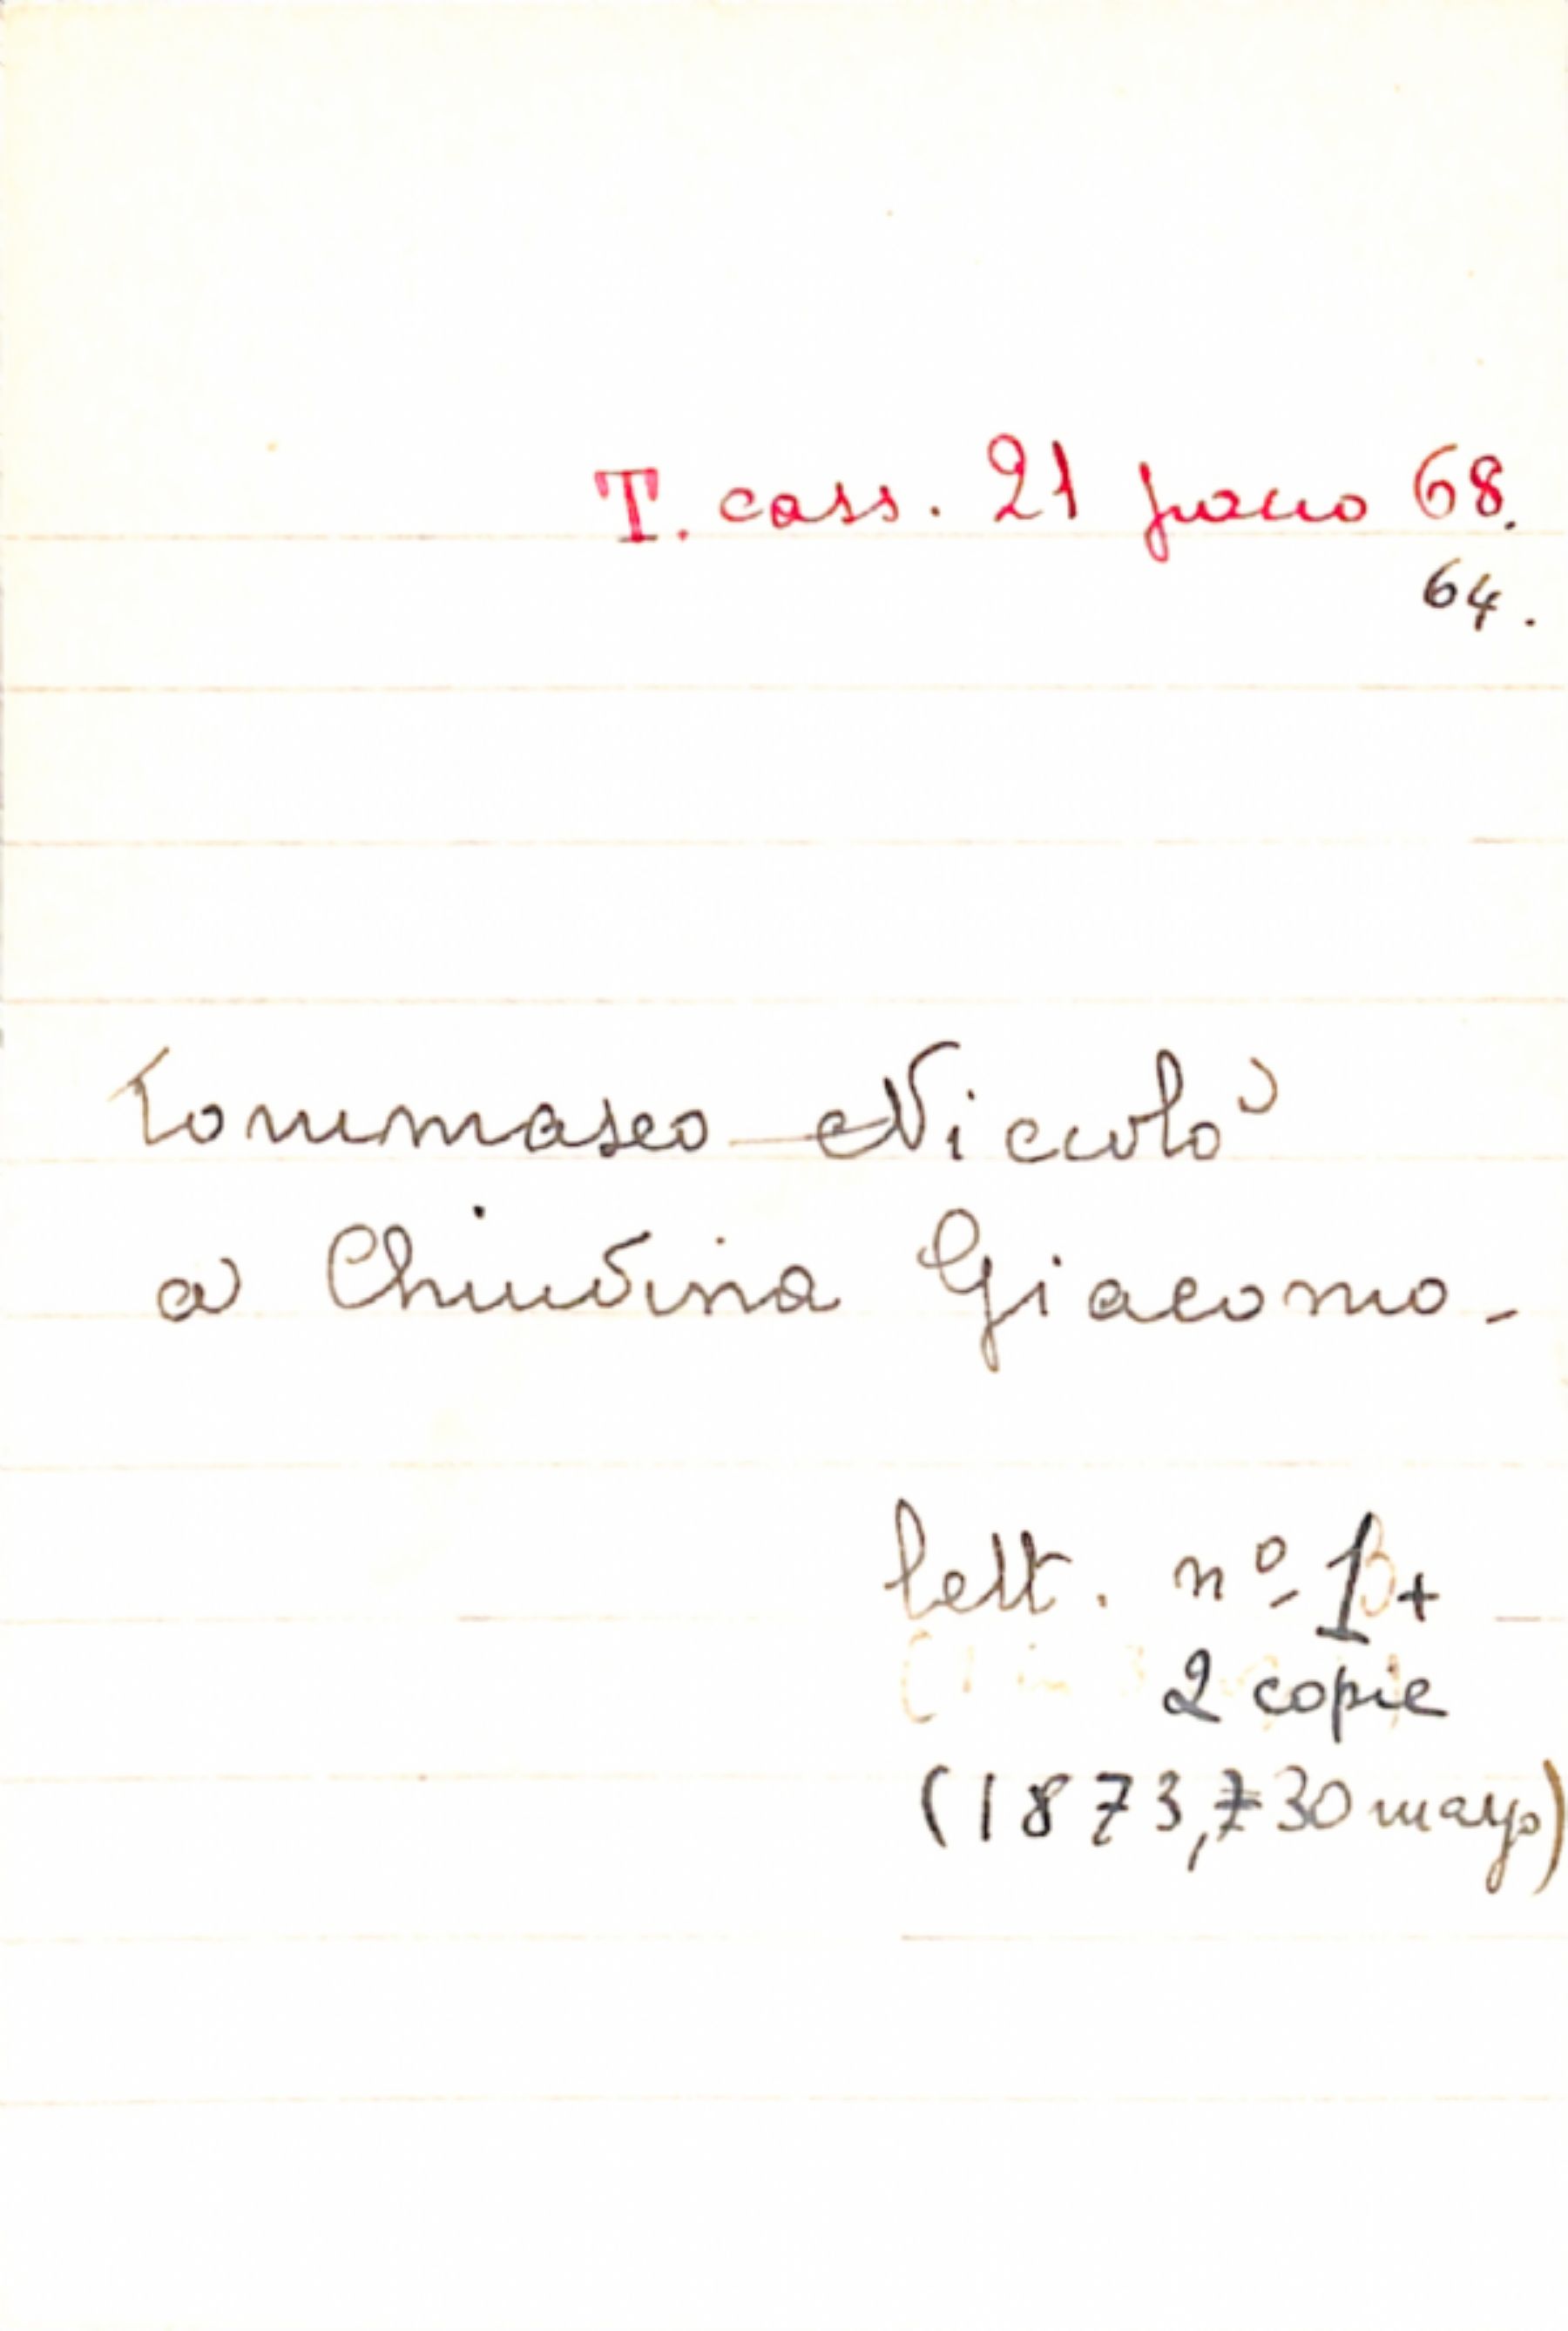 T. cass. 21 pacco 68.
64.
Tommaseo Niccolò
a Chiudina Giacomo.
lett. nº 1+
2 copie
(1873, 30 mayo)